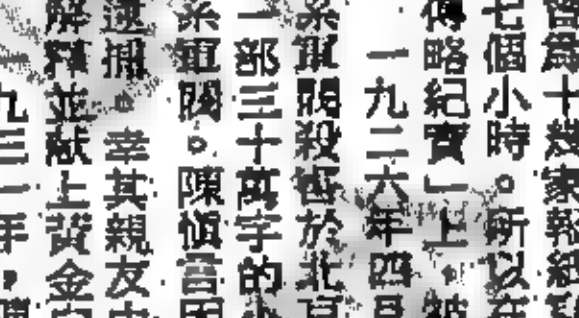 曾爲十幾家報紙
七個小時。所以在
傳略紀實」上 被
一九二六年四月
系軍閥殺害於北京
一部三十萬字的小
系軍閥。陳愼言因
逮捕。幸其親友
解釋並献上資金
一九三一年，